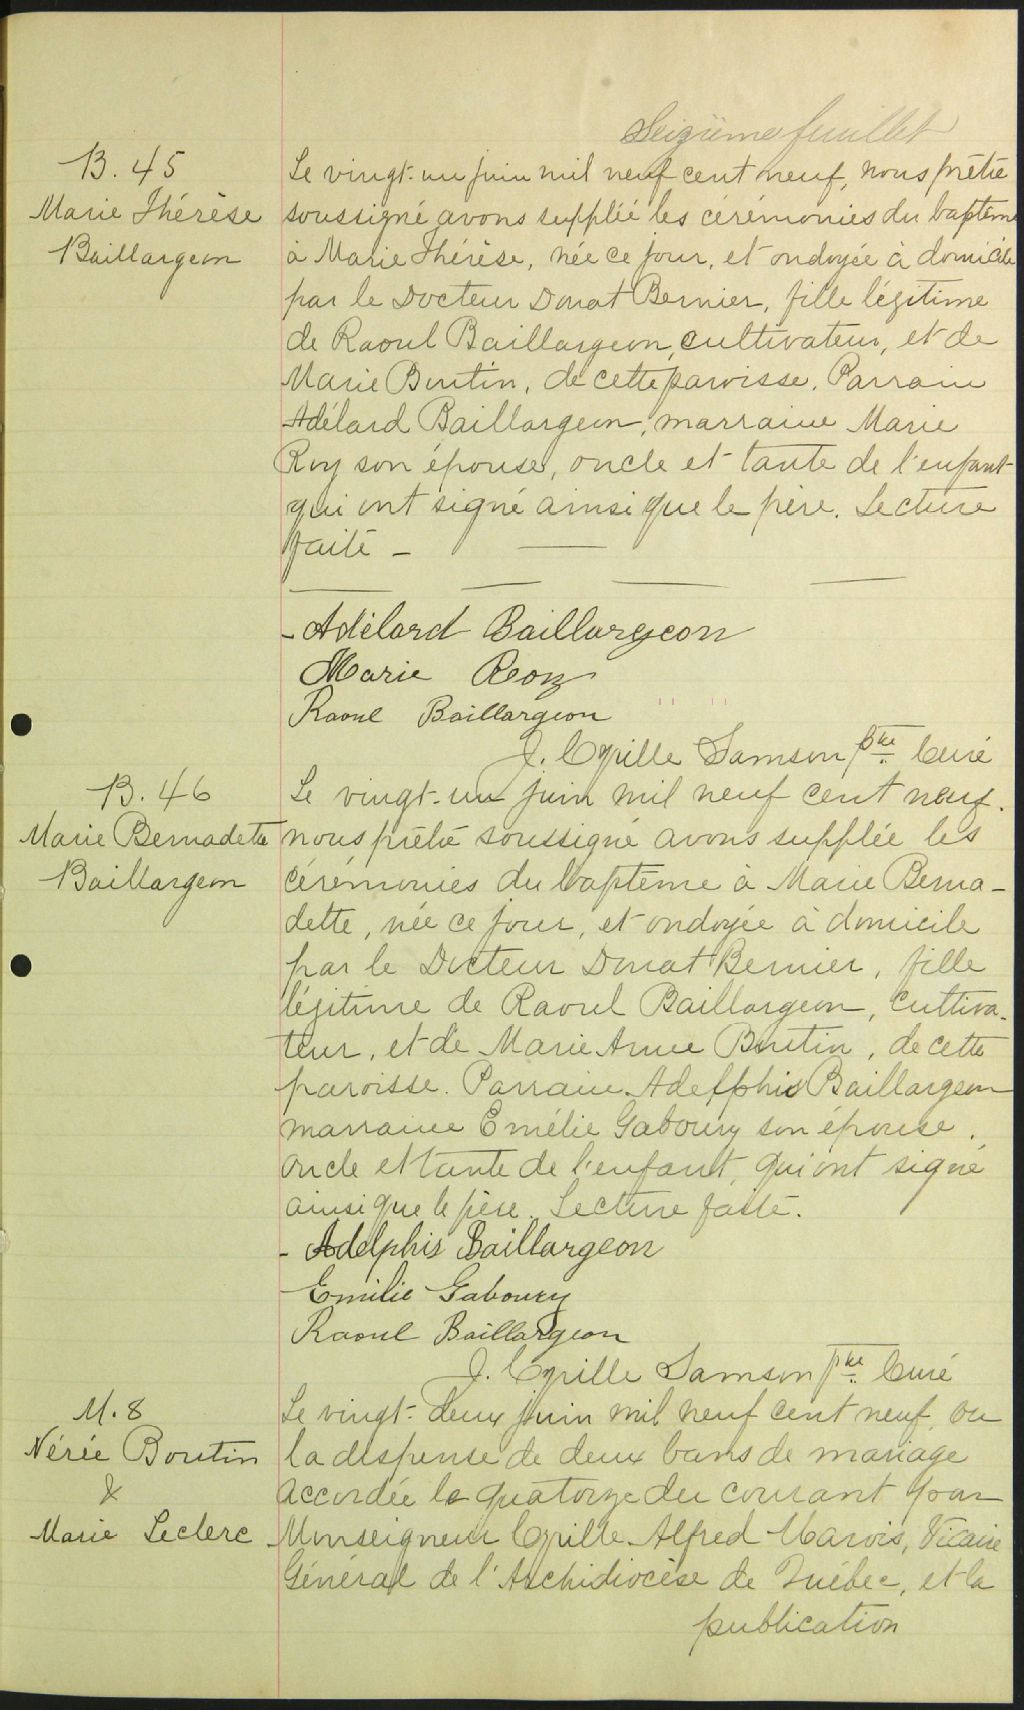 Seizième feuillet
B. 45
Marie Thérèse
Baillargeon
Le vingt-un juin mil neuf cent neuf, nous prêtre
soussigné avons supplée les cérémonies du baptême
à Marie Thérèse, née ce jour, et ondoyée à domicile
par le Docteur Donat Bernier, fille légitime
de Raoul Baillargeon, cultivateur, et de
Marie Boutin, de cette paroisse. Parrain
Adélard Baillargeon, marraine Marie
Roy son épouse, oncle et tante de l'enfant
qui ont signé ainsi que le père. Lecture
faite -
- Adélard Baillargeon
Marie Roy
Raoul Baillargeon
J. Cyrille Samson ptre Curé
B. 46
Marie Bernadette
Baillargeon
Le vingt-un juin mil neuf cent neuf.
nous prêtre soussigné avons supplée les
cérémonies du baptême à Marie Berna-
dette, née ce jour, et ondoyée à domicile
par le Docteur Donat Bernier, fille
légitime de Raoul Baillargeon, cultiva-
teur, et de Marie Anne Boutin, de cette
paroisse. Parrain Adelphis Baillargeon
marraine Emélie Gaboury son épouse.
oncle et tante de l'enfant, qui ont signé
ainsi que le père. Lecture faite.
- Adelphis Baillargeon
Emilie Gaboury
Raoul Baillargeon
J. Cyrille Samson ptre Curé
M. 8
Nérée Boutin
&
Marie Leclerc
Le vingt-deux juin mil neuf cent neuf, vu
la dispense de deux bans de mariage
accordée le quatorze du courant par
Monseigneur Cyrille Alfred Marois, Vicaire
Général de l'Archidiocèse de Québec, et la
publication